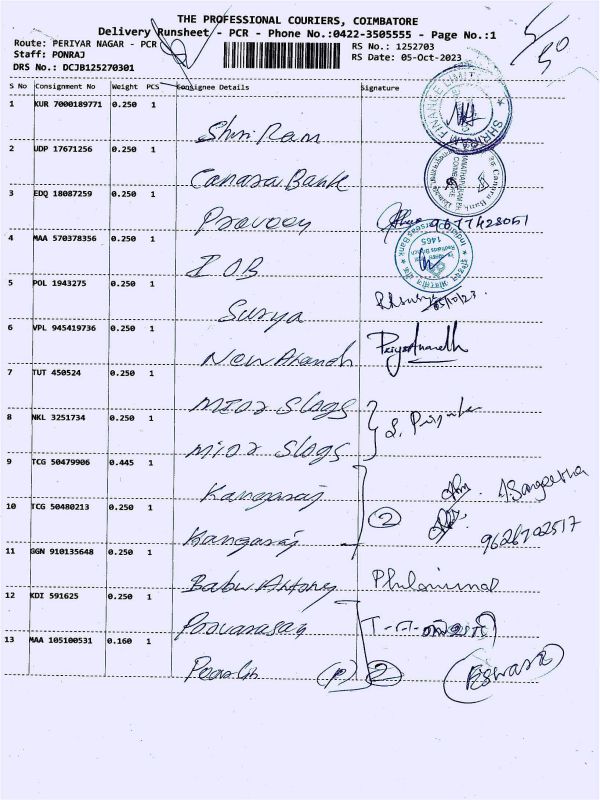 THE PROFESSIONAL COURIERS, COIMBATORE
Delivery Runsheet - PCR - Phone No.:0422-3505555 - Page No.:1
Route: PERIYAR NAGAR - PCR
Staff: PONRAJ
DRS No.: DCJB125270301
RS No.: 1252703
RS Date: 05-Oct-2023
S No Consignment No Weight PCS Consignee Details Signature
1 KUR 7000189771 0.250 1 Shri Ram
2 UDP 17671256 0.250 1 Canara Bank
3 EDQ 18087259 0.250 1 Praveen 9677428051
4 MAA 570378356 0.250 1 IOB
5 POL 1943275 0.250 1 Surya
6 VPL 945419736 0.250 1 New Anandh PriyaAnandh
7 TUT 450524 0.250 1
8 NKL 3251734 0.250 1
9 TCG 50479906 0.445 1 Kangaraj A. Sangeetha
10 TCG 50480213 0.250 1 Kangaraj 2 9626702517
11 GGN 910135648 0.250 1 Babu Antony Philominal
12 KDI 591625 0.250 1 Poovarasan
13 MAA 105100531 0.160 1 (P) 2 Eswari